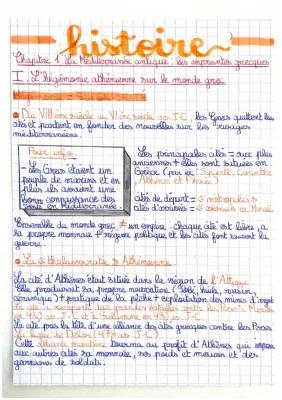 histoire
Chapitre 1 La Méditerranée antique : les empreintes grecques
I. L'hégémonie athénienne sur le monde grec
Hégémonie = Supériorité
Du VIIIème siècle au VIème siècle av J-C, les Grecs quittent les
cités et partent en fonder des nouvelles sur les rivages
méditerranéens.
Pour info :
- Les Grecs étaient un
peuple de marins et en
plus ils avaient une
bonne connaissance des
vents en Méditerranée.
Les principales cités = avec plus
anciennes + elles sont situées en
Grèce (par ex : Sparte, Corinthe,
Athènes et Phocée)
cités de départ =
cités d'arrivées =
Ensemble du monde grec ≠ un empire. chaque cité est libre, a
sa propre monnaie + régime politique et les cités font souvent la
guerre.
La thalassocratie Athénienne
La cité d'Athènes était située dans la région de l'Attique
Elle produisait sa propre nourriture (blé, huile, raisin,
céramique) + pratique de la pêche + exploitation des mines d'argent
La cité a remporté des grandes batailles contre les Perses : Marathon
en 490 av J-C et à Salamine en 480 av J-C
La cité pris la tête d'une alliance des cités grecques contre les Perses
La ligue de Délos (478 av J-C)
Cette alliance maritime tourna au profit d'Athènes qui impose
aux autres cités sa monnaie, ses poids et mesures et des
garnisons de soldats.